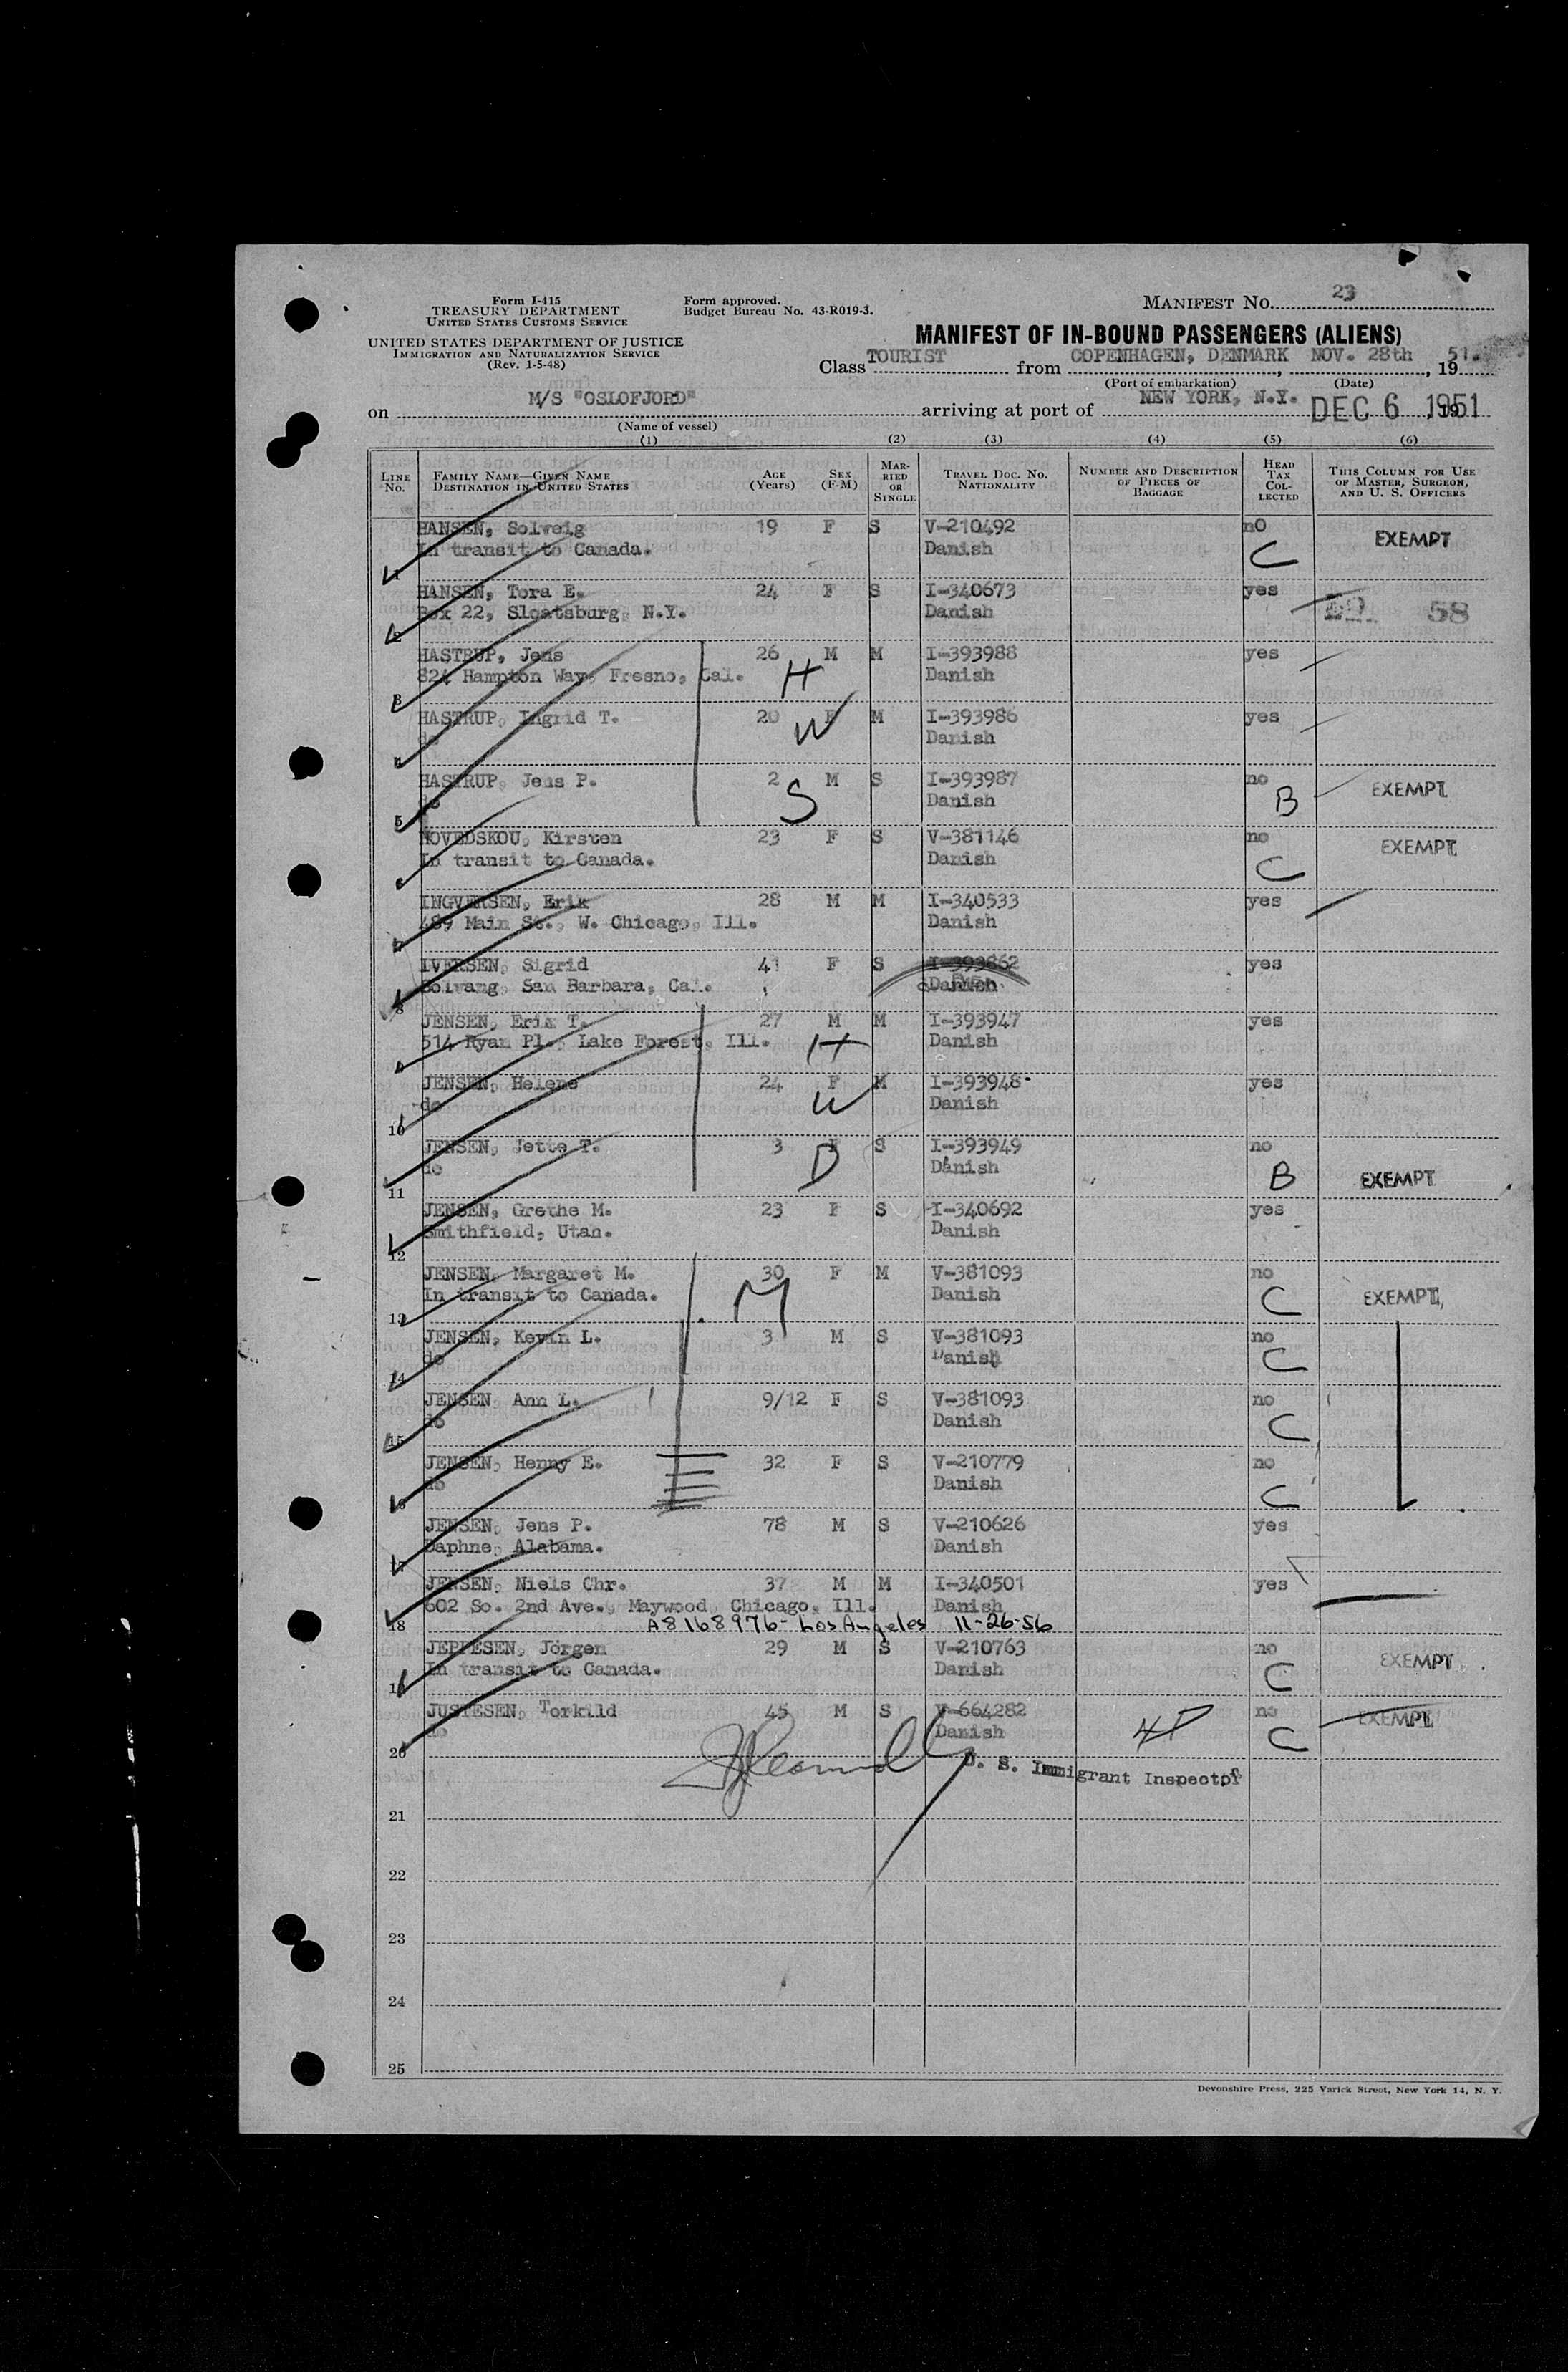 Form I-415
TREASURY DEPARTMENT
UNITED STATES CUSTOMS SERVICE
UNITED STATES DEPARTMENT OF JUSTICE
IMMIGRATION AND NATURALIZATION SERVICE
(Rev. 1-5-48)
Form approved.
Budget Bureau No. 43-R019-3.
MANIFEST No. 23
MANIFEST OF IN-BOUND PASSENGERS (ALIENS)
Class TOURIST from COPENHAGEN, DENMARK NOV. 28th, 19 51.
(Port of embarkation) (Date)
on M/S "OSLOFJORD" arriving at port of NEW YORK, N.Y. DEC 6 1951
(Name of vessel)
(1) (2) (3) (4) (5) (6)
LINE No. FAMILY NAME—GIVEN NAME DESTINATION IN UNITED STATES AGE (Years) SEX (F-M) MARRIED OR SINGLE TRAVEL DOC. NO. NATIONALITY NUMBER AND DESCRIPTION OF PIECES OF BAGGAGE HEAD TAX COLLECTED THIS COLUMN FOR USE OF MASTER, SURGEON, AND U. S. OFFICERS
HANSEN, Solveig 19 F S V-210492 no EXEMPT
In transit to Canada. Danish C
1
HANSEN, Tora E. 24 F S I-340673 yes
Box 22, Sloatsburg, N.Y. Danish 58
2
HASTRUP, Jens 26 M M I-393988 yes
824 Hampton Way, Fresno, Cal. H Danish
3
HASTRUP, Ingrid T. 20 F M I-393986 yes
do W Danish
4
HASTRUP, Jens P. 2 M S I-393987 no EXEMPT
do S Danish B
5
HOVEDSKOU, Kirsten 23 F S V-381146 no EXEMPT
In transit to Canada. Danish C
6
INGVERSEN, Erik 28 M M I-340533 yes
489 Main St., W. Chicago, Ill. Danish
7
IVERSEN, Sigrid 41 F S I-393862 yes
Solvang, San Barbara, Cal. Danish
8
JENSEN, Erik T. 27 M M I-393947 yes
514 Ryan Pl., Lake Forest, Ill. H Danish
9
JENSEN, Helene 24 F M I-393948 yes
do W Danish
10
JENSEN, Jette T. 3 F S I-393949 no
do D Danish B EXEMPT
11
JENSEN, Grethe M. 23 F S I-340692 yes
Smithfield, Utah. Danish
12
JENSEN, Margaret M. 30 F M V-381093 no
In transit to Canada. M Danish C EXEMPT
13
JENSEN, Kevin L. 3 M S V-381093 no
do Danish C
14
JENSEN, Ann L. 9/12 F S V-381093 no
do Danish C
15
JENSEN, Henny E. 32 F S V-210779 no
do Danish C
16
JENSEN, Jens P. 78 M S V-210626 yes
Daphne, Alabama. Danish
17
JENSEN, Niels Chr. 37 M M I-340501 yes
602 So. 2nd Ave., Maywood, Chicago, Ill. Danish
18 A8168976- Los Angeles 11-26-56
JEPPESEN, Jörgen 29 M S V-210763 no EXEMPT
In transit to Canada. Danish C
19
JUSTESEN, Torkild 45 M S V-664282 no EXEMPT
do Danish C
20
U. S. Immigrant Inspector
21
22
23
24
25
Devonshire Press, 225 Varick Street, New York 14, N. Y.